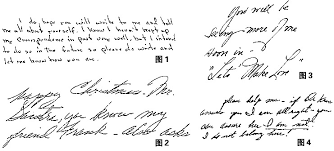 I do hope you will write to me and tell
me all about yourself. I haven't kept up
my correspondence in past very well, but I intend
to do so in the future so please do write and
let me know how you are.
图1
Happy Christmas, Mr.
you know my
friend Frank - also asks
图2
You will be
seeing more of me
soon in -
"Let's Make Love"
图3
please help me - if Dr.
assures you I am all right you
can assure her I am not
I do not belong here!
图4